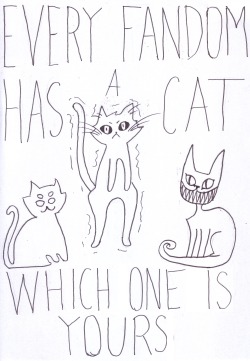 EVERY FANDOM
HAS A CAT
WHICH ONE IS
YOURS